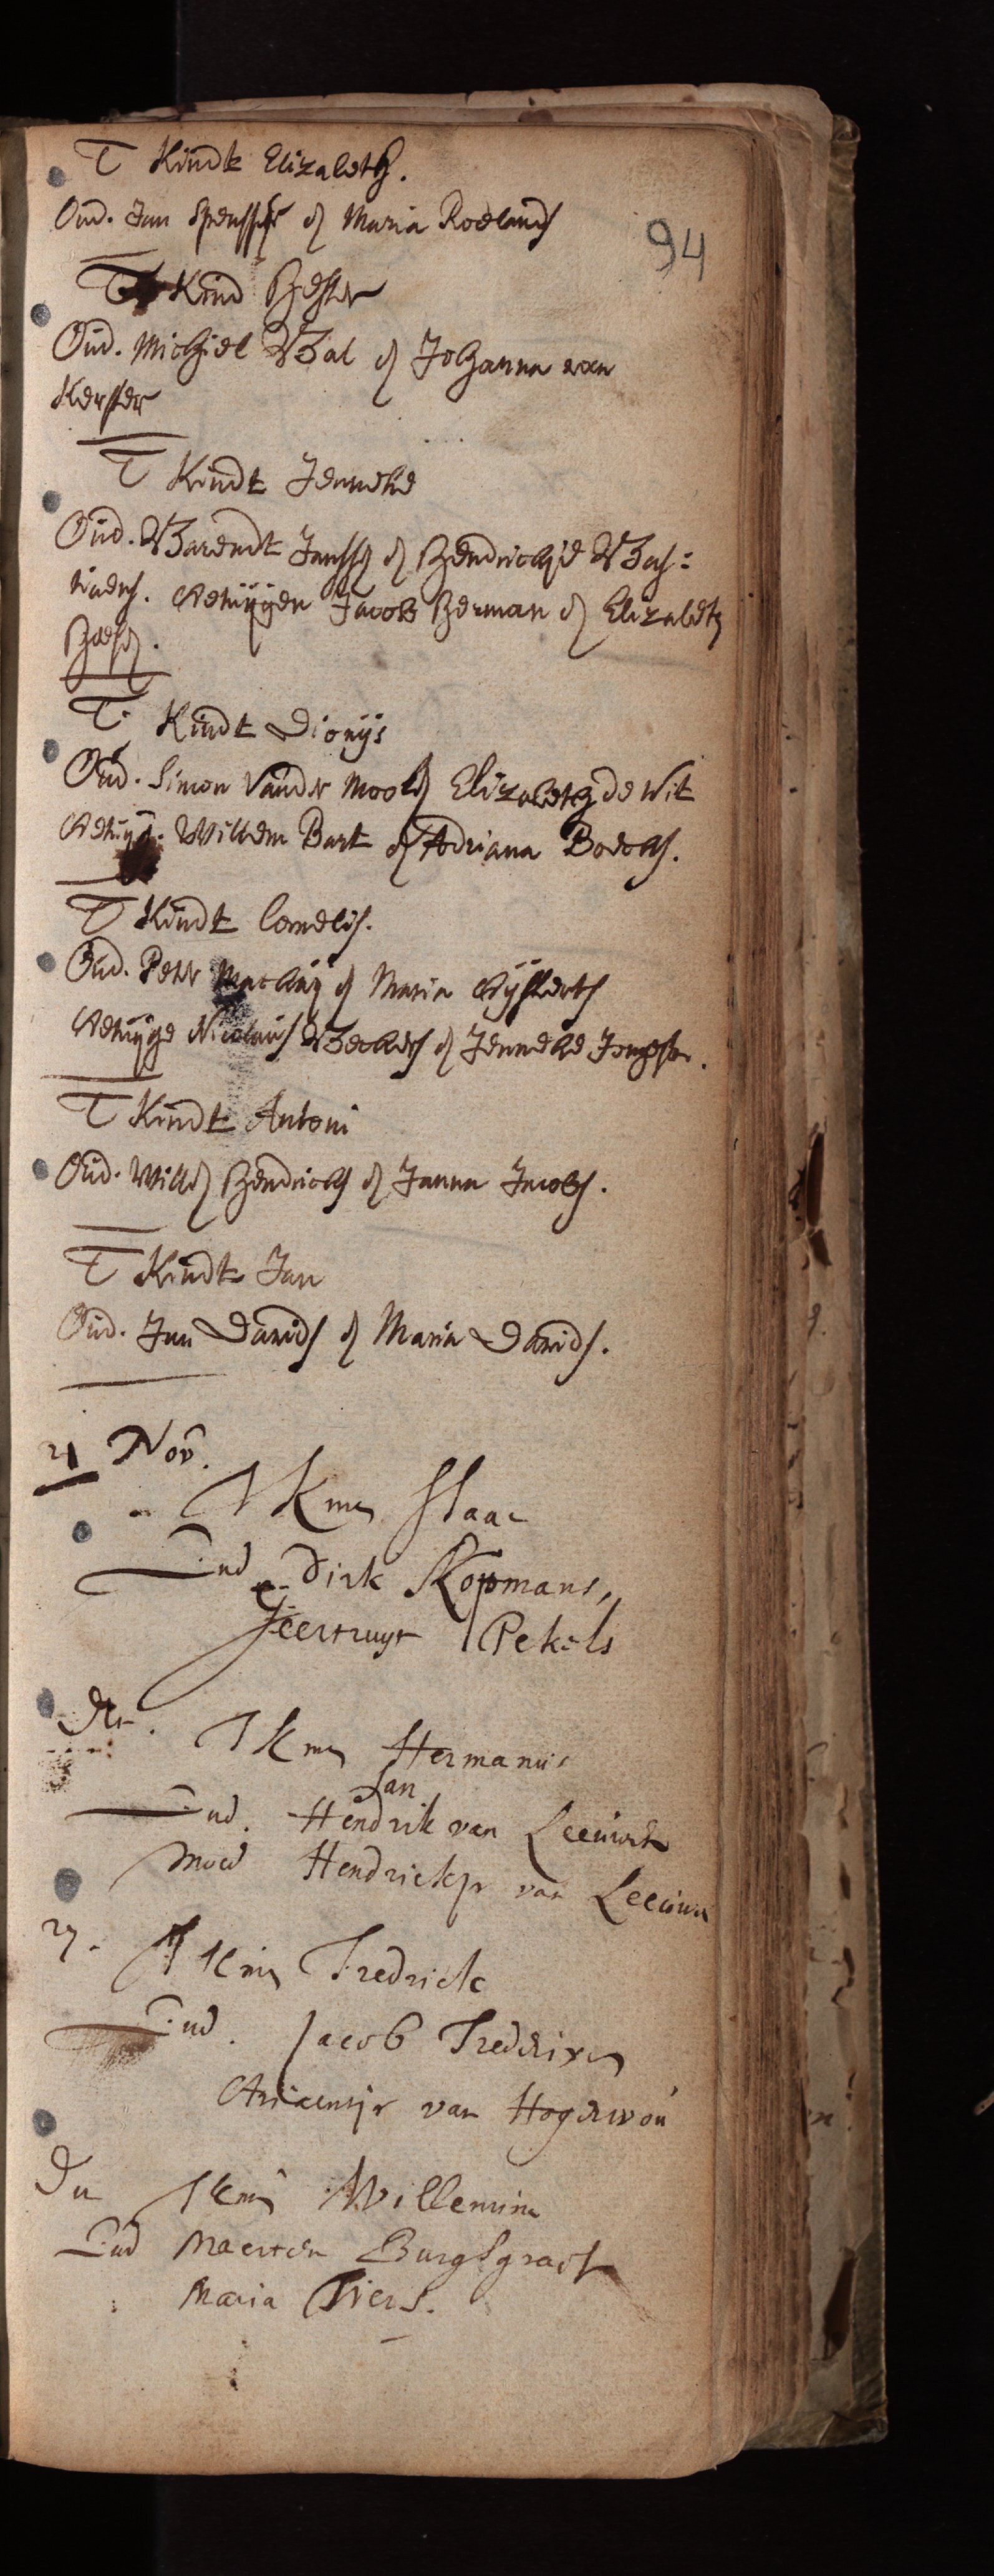 T Kindt Elizabeth.
Oud. Jan en Maria Roelands
94
T Kind Hester
Oud. Michiel Bal en Johanna van
Kerster
T Kindt Jenneke
Oud. Barendt Janss en Hendrickje Bas:
tiaens. Getuijgen Jacob Herman en Elizabeth

T. Kindt Dionijs
Oud. Simon Vander Mool en Elizabeth de Wit
Getuijg. Willem Bart en Adriana
T Kindt Cornelis.
Oud. Peter en Maria Gijsberts
Getuijge Nicolaus Beckers en Jenneke
T Kindt Antoni
Oud. Will Hendricks en Janna Jacobs.
T Kindt Jan
Oud. Jan Davids en Maria Davids.
21 Nov.
T Kint Isaac
Oud Dirk Kopmans,
Geertruyt Pekels
T Kint Hermanus
Jan
Oud. Hendrik van Leeuwen
Moed Hendrickje van Leeuwen
27. T Kint Fredrick
Oud. Jacob Fredrixen
Ariaentje van
Do T Kint Willemina
Oud Maerten Burghgraef
Maria